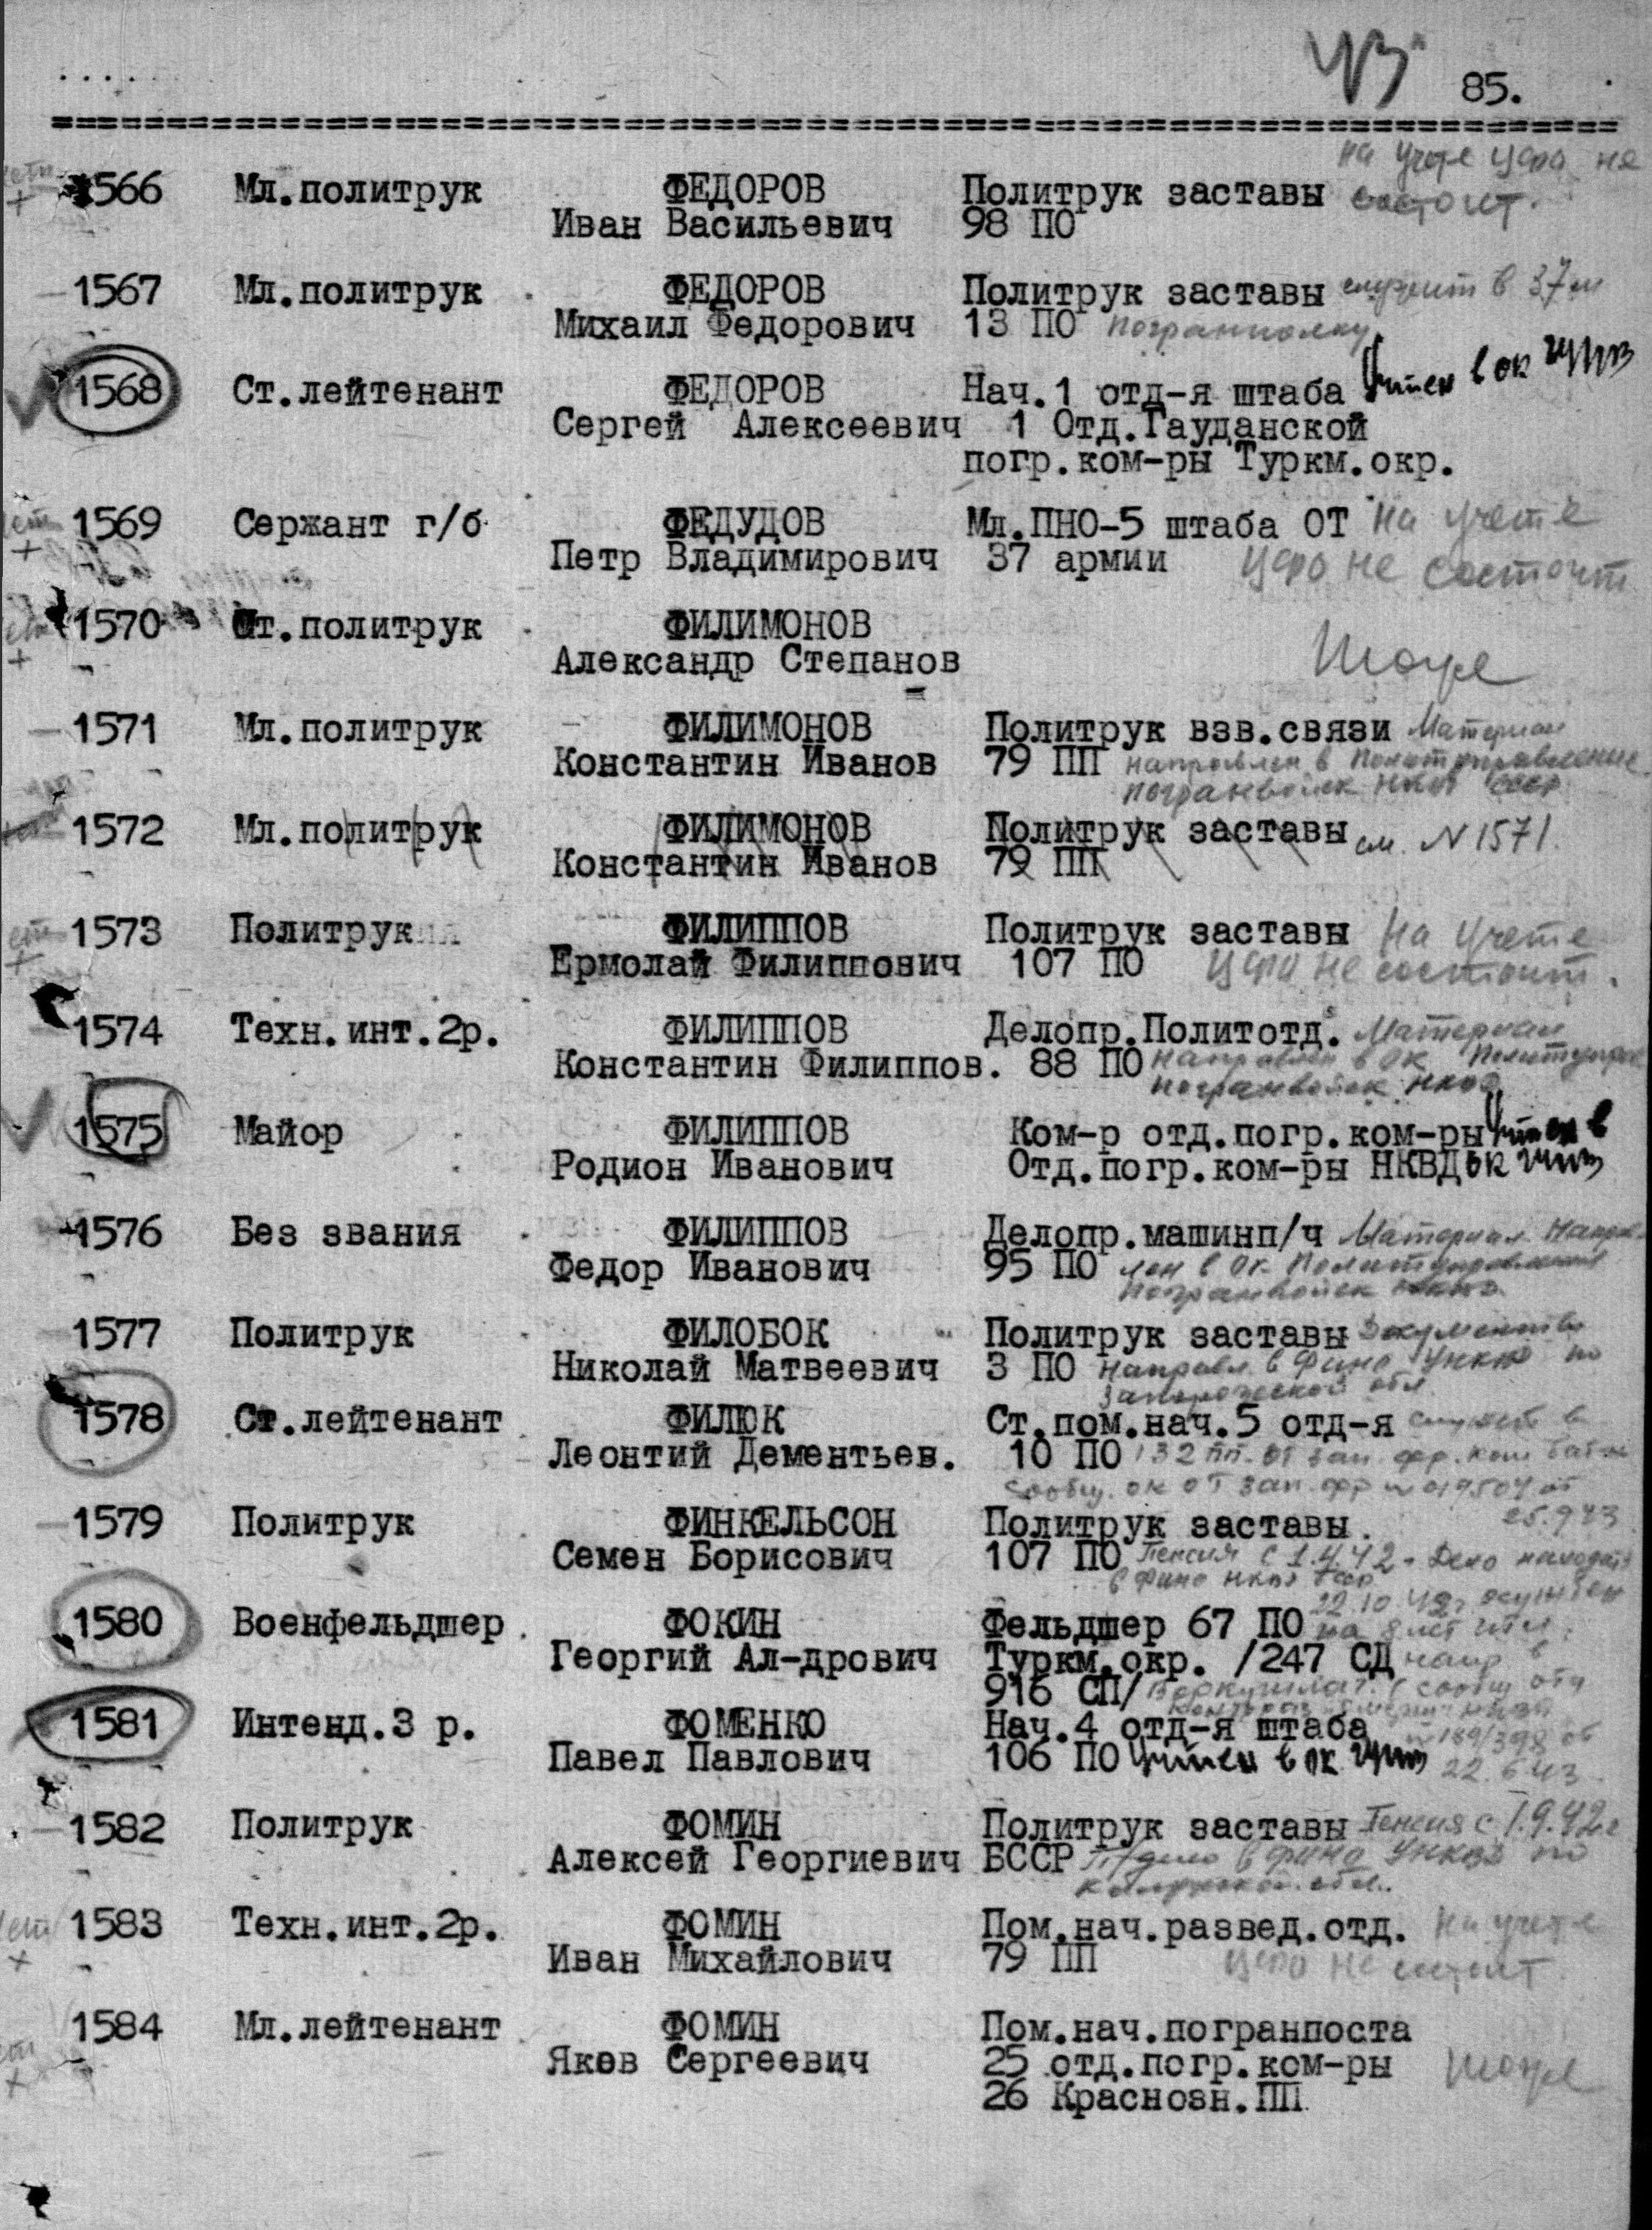 85.
на учете ЦФПО не
1566 Мл.политрук ФЕДОРОВ Политрук заставы состоит.
Иван Васильевич 98 ПО
1567 Мл.политрук ФЕДОРОВ Политрук заставы служит в 37 м
Михаил Федорович 13 ПО погранполку
1568 Ст.лейтенант ФЕДОРОВ Нач.1 отд-я штаба Учтен в ОК
Сергей Алексеевич 1 Отд.Гауданской
погр.ком-ры Туркм.окр.
1569 Сержант г/б ФЕДУДОВ Мл.ПНО-5 штаба ОТ На учете
Петр Владимирович 37 армии ЦФПО не состоит
1570 Ст.политрук ФИЛИМОНОВ
Александр Степанов тоже
1571 Мл.политрук ФИЛИМОНОВ Политрук взв.связи Материал
Константин Иванов 79 ПП направлен в Политуправление
погранвойск НКВД СССР
1572 Мл.политрук ФИЛИМОНОВ Политрук заставы см. N 1571.
Константин Иванов 79 ПП
1573 Политрук ФИЛИППОВ Политрук заставы На учете
Ермолай Филиппович 107 ПО ЦФПО не состоит.
1574 Техн.инт.2р. ФИЛИППОВ Делопр.Политотд. Материал
Константин Филиппов. 88 ПО направлен в ОК Политупр
погранвойск НКВД
1575 Майор ФИЛИППОВ Ком-р отд.погр.ком-ры Учтен в
Родион Иванович Отд.погр.ком-ры НКВД ОК
1576 Без звания ФИЛИППОВ Делопр.машинп/ч Материал направ
Федор Иванович 95 ПО лен в ОК Политуправления
погранвойск НКВД
1577 Политрук ФИЛОБОК Политрук заставы Документы
Николай Матвеевич 3 ПО направл. в ФИНО УНКВД по
Запорожской обл.
1578 Ст.лейтенант ФИЛЮК Ст.пом.нач.5 отд-я служит в
Леонтий Дементьев. 10 ПО 132 ПП. ОТ зап. фр. ком. бат-на
сообщ. ОК ОТ зап. фр от
25.9.43
1579 Политрук ФИНКЕЛЬСОН Политрук заставы.
Семен Борисович 107 ПО Пенсия с 1.4.42 - Дело находит
в ФИНО НКВД
22.10.42г осужден
1580 Военфельдшер ФОКИН Фельдшер 67 ПО на 8 лет ИТЛ.
Георгий Ал-дрович Туркм.окр. /247 СД напр в
916 СП/ Воркутлаг. сообщ отд
1581 Интенд.3 р. ФОМЕНКО Нач.4 отд-я штаба N 189/398 от
Павел Павлович 106 ПО Учтен в ОК 22.6.43
1582 Политрук ФОМИН Политрук заставы Пенсия с 1.9.42г
Алексей Георгиевич БССР П/дело в ФИНО УНКВД по
обл.
1583 Техн.инт.2р. ФОМИН Пом.нач.развед.отд. На учете
Иван Михайлович 79 ПП ЦФПО не состоит
1584 Мл.лейтенант ФОМИН Пом.нач.погранпоста
Яков Сергеевич 25 отд.погр.ком-ры тоже
26 Краснозн.ПП